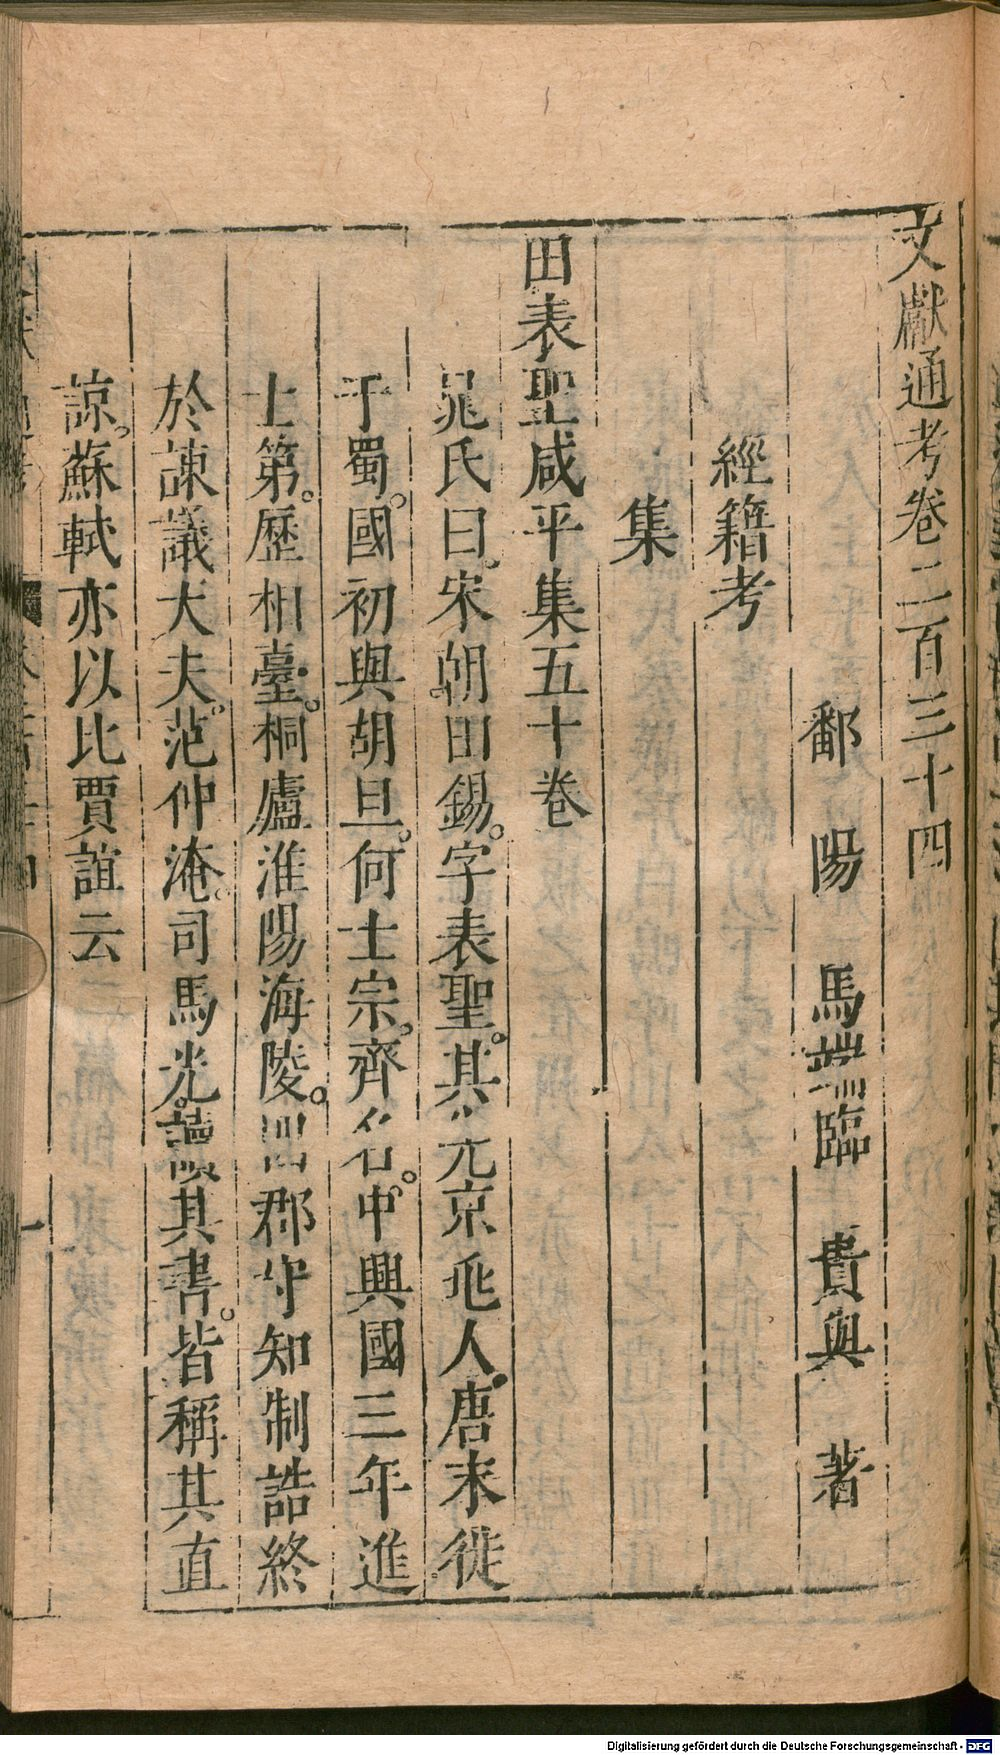 文獻通考卷二百三十四
鄱陽馬端臨貴與著
經籍考
集
田表聖咸平集五十卷
晁氏曰宋朝田錫。字表聖。其先京兆人。唐末徙
于蜀。國初與胡旦。何士宗。齊名。中興國三年進
士第。歷相臺。桐廬淮陽海陵。四郡守知制誥終
於諫議大夫。范仲淹。司馬光。讀其書。皆稱其直
諒。蘇軾亦以比賈誼云
一
Digitalisierung gefördert durch die Deutsche Forschungsgemeinschaft - DFG